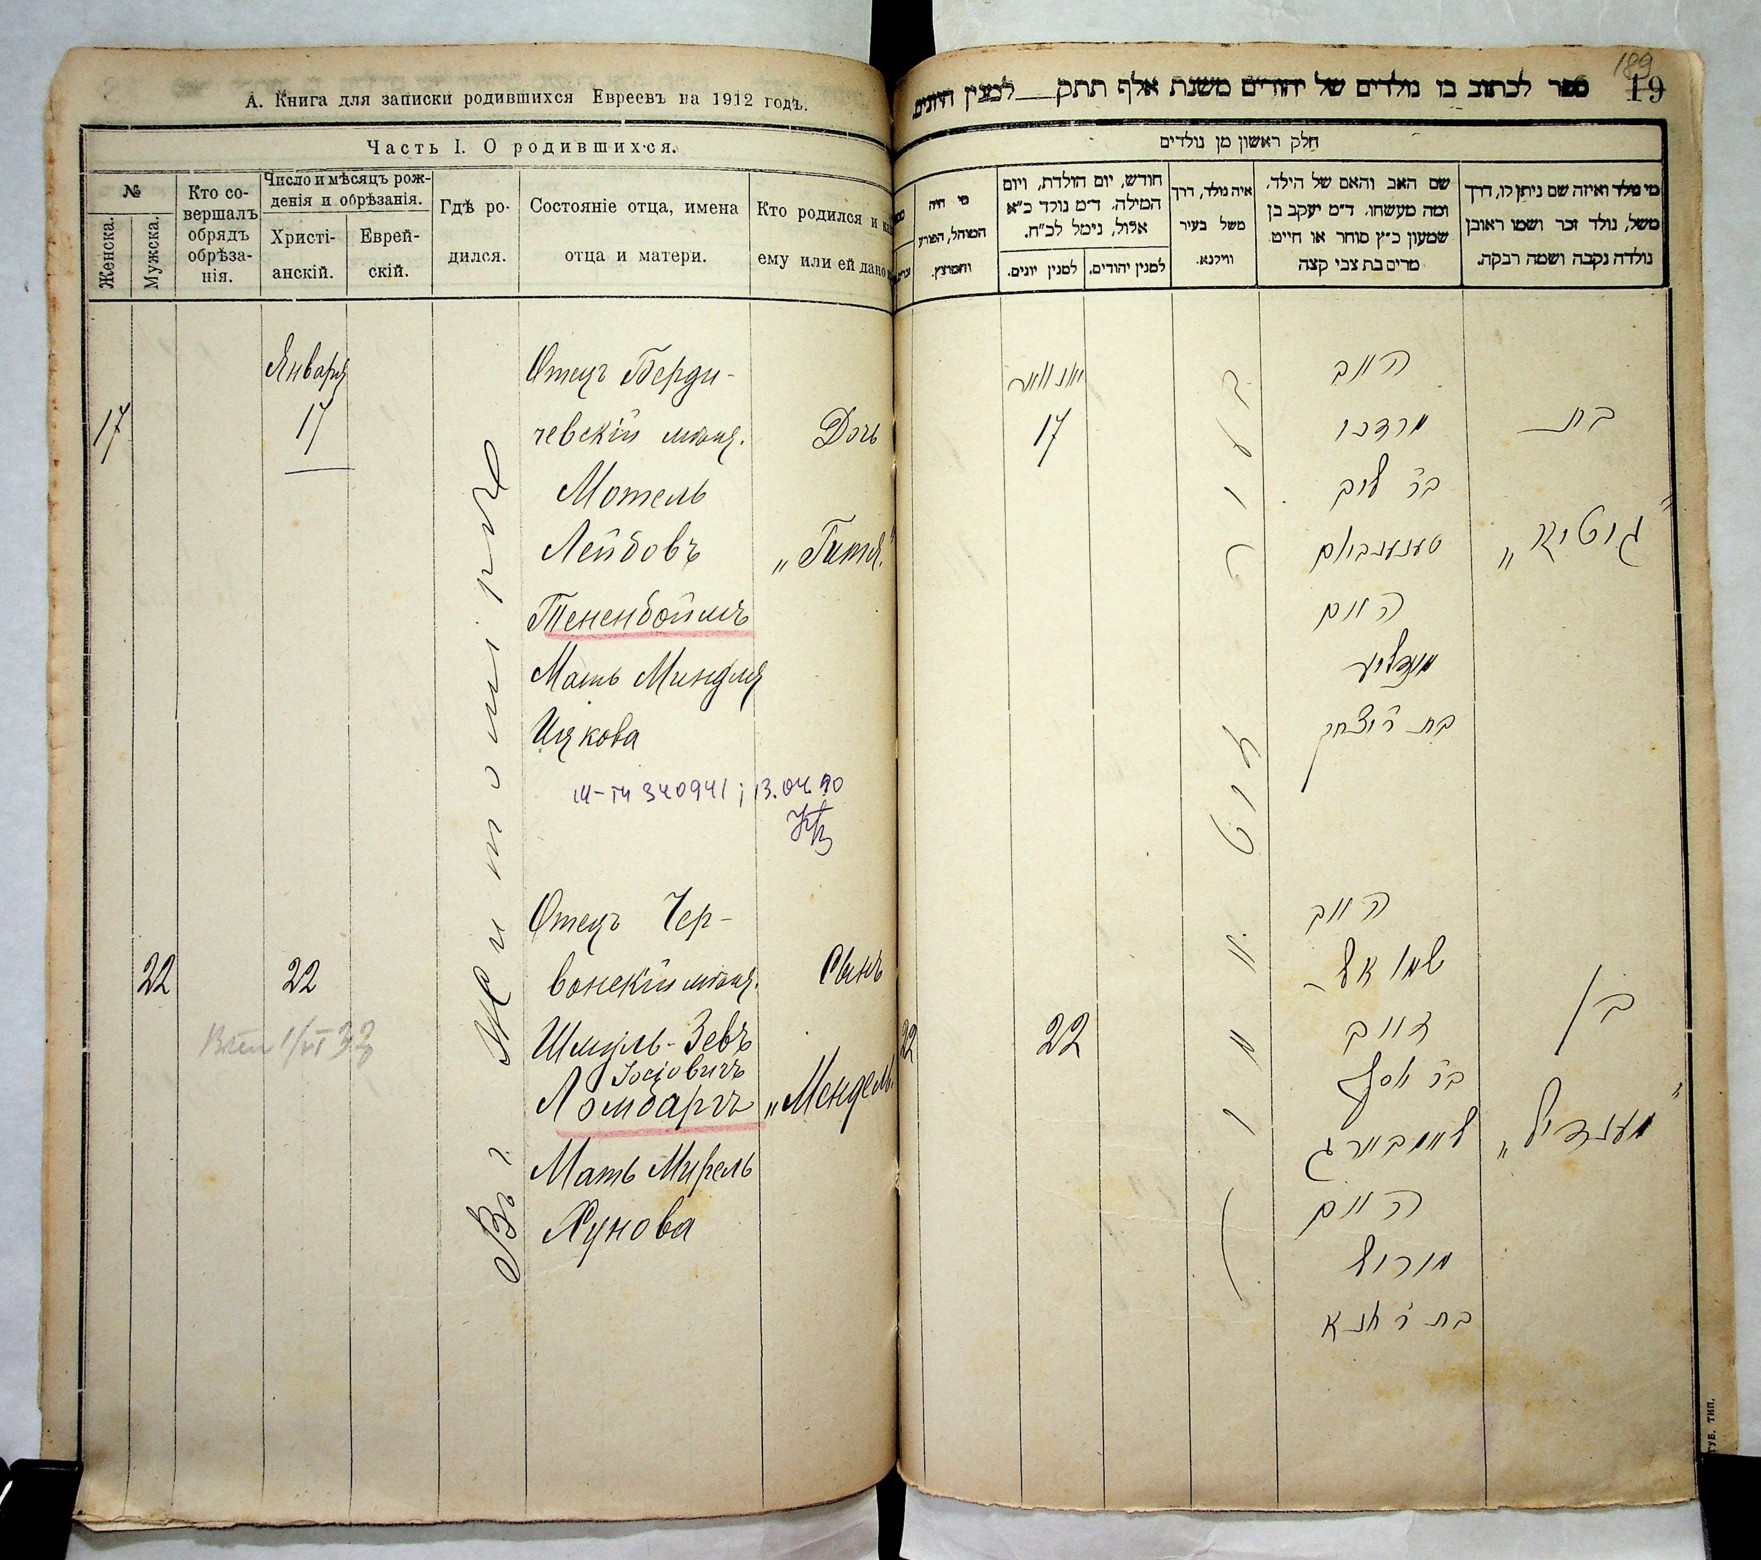 А. Книга для записки родившихся Евреевъ на 1912 годъ.
Часть I. О родившихся.
№
Женска.
Мужска.
Кто со-
вершалъ
обрядъ
обрѣза-
нія.
Число и мѣсяцъ рож-
денія и обрѣзанія.
Христі-
анскій.
Еврей-
скій.
Гдѣ ро-
дился.
Состояніе отца, имена
отца и матери.
Кто родился и
ему или ей дано
Января
17
17
Въ г. Житомірѣ
Отецъ Берди-
чевскій мѣщ.
Мотель
Лейбовъ
Тененбоймъ
Мать Миндля
Ицкова
Дочь
„Гитля"
340941 ; 13.04.90
22
22
Отецъ Чер-
вонскій мѣщ.
Шмуль-Зевъ
Іосіовичъ
Ломбаргъ
Мать Мирель
Хунова
Сынъ
„Мендель"
189
19
ספר לכתוב בו נולדים של יהודים משנת אלף תתק__ למנין היונים
חלק ראשון מן נולדים
מי נולד ואיזה שם ניתן לו, דרך
משל, נולד זכר ושמו ראובן
נולדה נקבה ושמה רבקה.
שם האב והאם של הילד,
ומה מעשהו. ד״מ יעקב בן
שמעון כ״ץ סוחר או חיים
מרים בת צבי קצה
איה נולד, דרך
משל בעיר
ווילנא.
חודש, יום הולדת, ויום
המילה. ד״מ נולד כ״א
אלול, נימל לכ״ח.
למנין יהודים.
למנין יונים.
מי היה
המוהל, הפורע
והמוצץ.
יאנוואר
17
האב
מרדכי
בר׳ ליב
טענענבוים
האם
מינדליע
בת ר׳ יצחק
בת
„גוטיל"
בעיר זיטאמיר
22
22
האב
שמואל
זאב
בר׳ יוסף
לאמבארג
האם
מירל
בת ר׳ חנא
בן
„מענדיל"
ГУБ. ТИП.